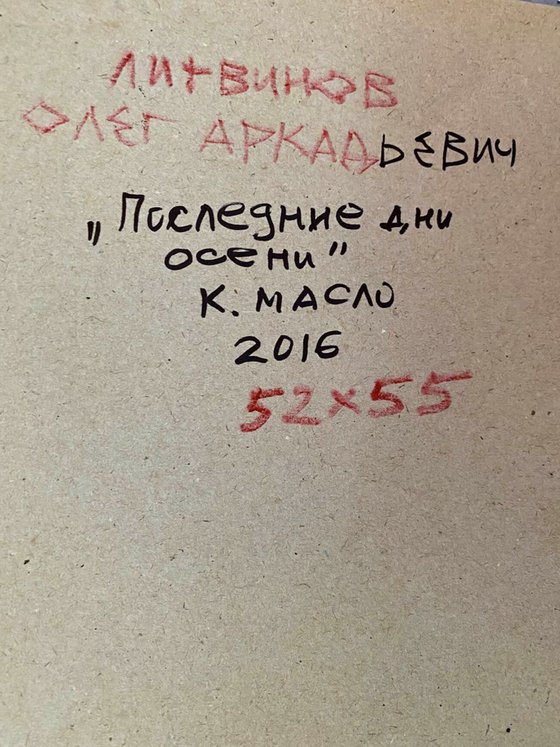 ЛИТВИНОВ
ОЛЕГ АРКАДЬЕВИЧ
„Последние дни
осени"
К. МАСЛО
2016
52x55